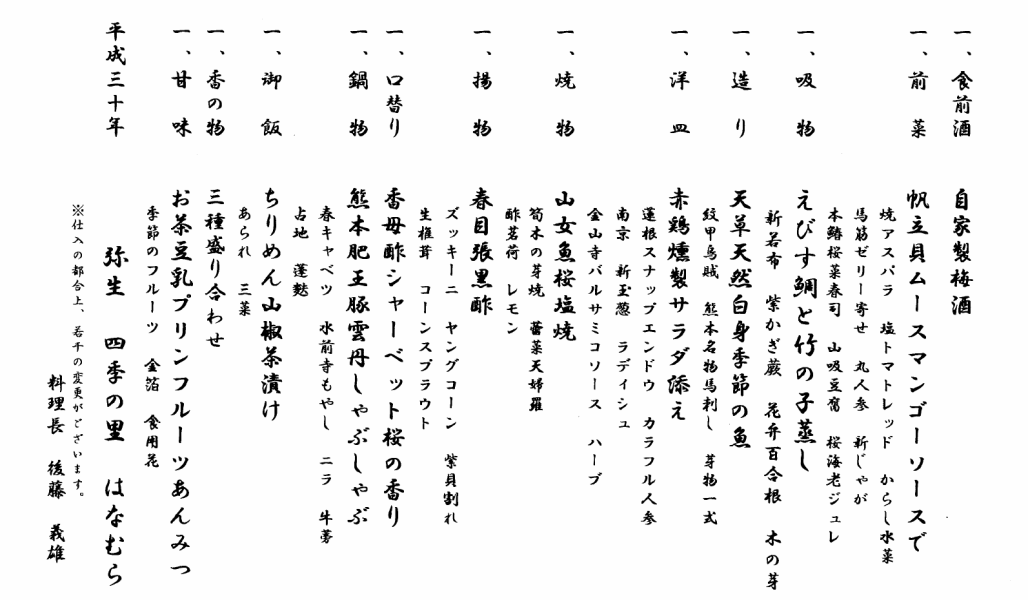 一、食前酒　自家製梅酒
一、前菜　帆立貝ムースマンゴーソースで
焼アスパラ　塩トマトレッド　からし水菜
馬筋ゼリー寄せ　丸人参　新じゃが
本鰆桜菜春司　山吸豆腐　桜海老ジュレ
一、吸物　えびす鯛と竹の子蒸し
新若布　紫かぎ蕨　花弁百合根　木の芽
一、造り　天草天然白身季節の魚
紋甲烏賊　熊本名物馬刺し　芽物一式
一、洋皿　赤鶏燻製サラダ添え
蓮根スナップエンドウ　カラフル人参
南京　新玉葱　ラディシュ
金山寺バルサミコソース　ハーブ
一、焼物　山女魚桜塩焼
筍木の芽焼　蕾菜天婦羅
酢茗荷　レモン
一、揚物　春目張黒酢
ズッキーニ　ヤングコーン　紫貝割れ
生椎茸　コーンスプラウト
一、口替り　香母酢シャーベット桜の香り
一、鍋物　熊本肥王豚雲丹しゃぶしゃぶ
春キャベツ　水前寺もやし　ニラ　牛蒡
占地　蓬麩
一、御飯　ちりめん山椒茶漬け
あられ　三菜
一、香の物　三種盛り合わせ
一、甘味　お茶豆乳プリンフルーツあんみつ
季節のフルーツ　金箔　食用花
平成三十年　弥生　四季の里　はなむら
※仕入の都合上、若干の変更がございます。
料理長　後藤　義雄